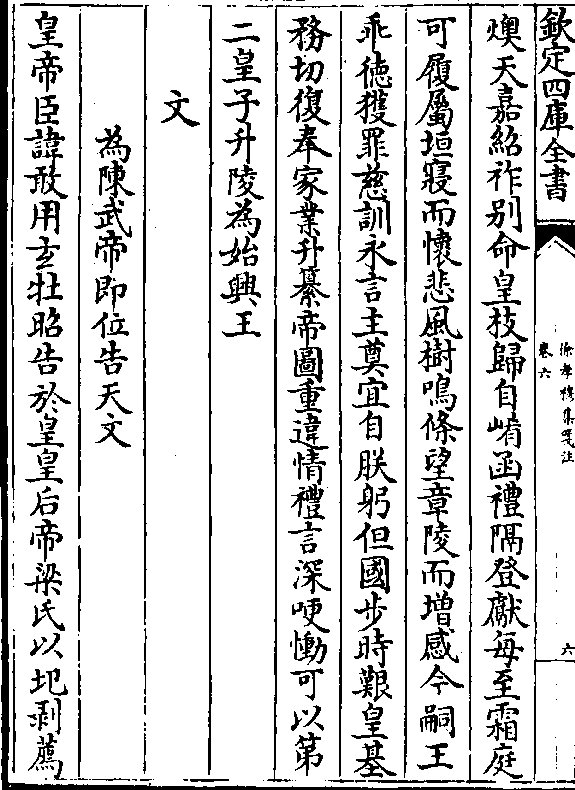 欽定四庫全書
徐孝穆集箋注
卷六
六
燠天嘉紹祚别命皇枝歸自崤函禮隔登獻每至霜庭
可履屬垣寢而懷悲風樹鳴條望章陵而增感今嗣王
乖徳獲罪慈訓永言主奠宜自朕躬但國步時艱皇基
務切復奉家業升纂帝圖重違情禮言深哽慟可以第
二皇子升陵為始興王
文
為陳武帝即位告天文
皇帝臣諱敢用玄牡昭告於皇皇后帝梁氏以圯剥薦